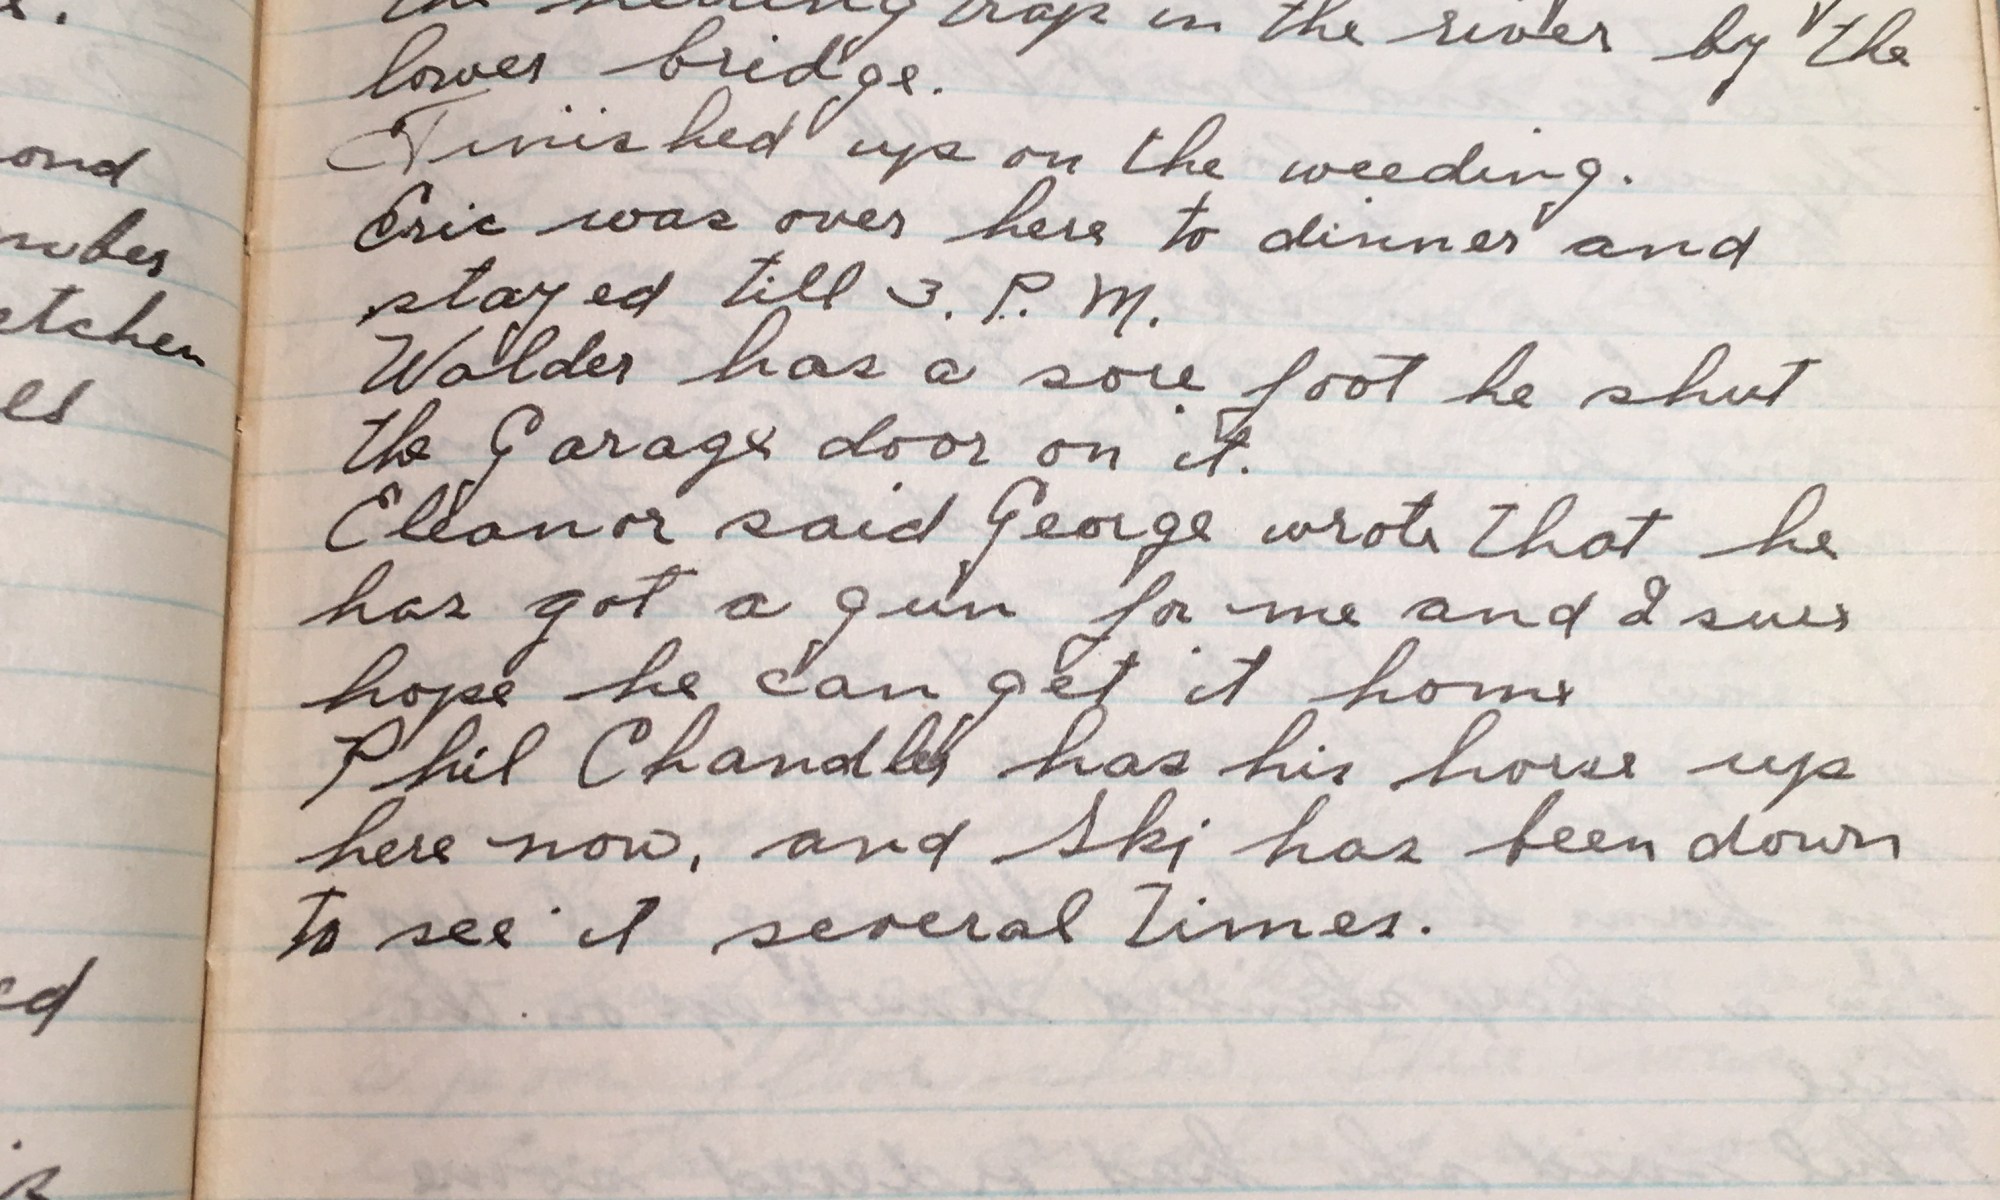 .
ond
etchen
ed
trap in the river by the
lower bridge.
Finished up on the weeding.
Eric was over here to dinner and
stayed till 3. P. M.
Walder has a sore foot he shut
the Garage door on it.
Eleanor said George wrote that he
has got a gun for me and I suer
hope he can get it home
Phil Chandler has his horse up
here now, and Ski has been down
to see it several times.